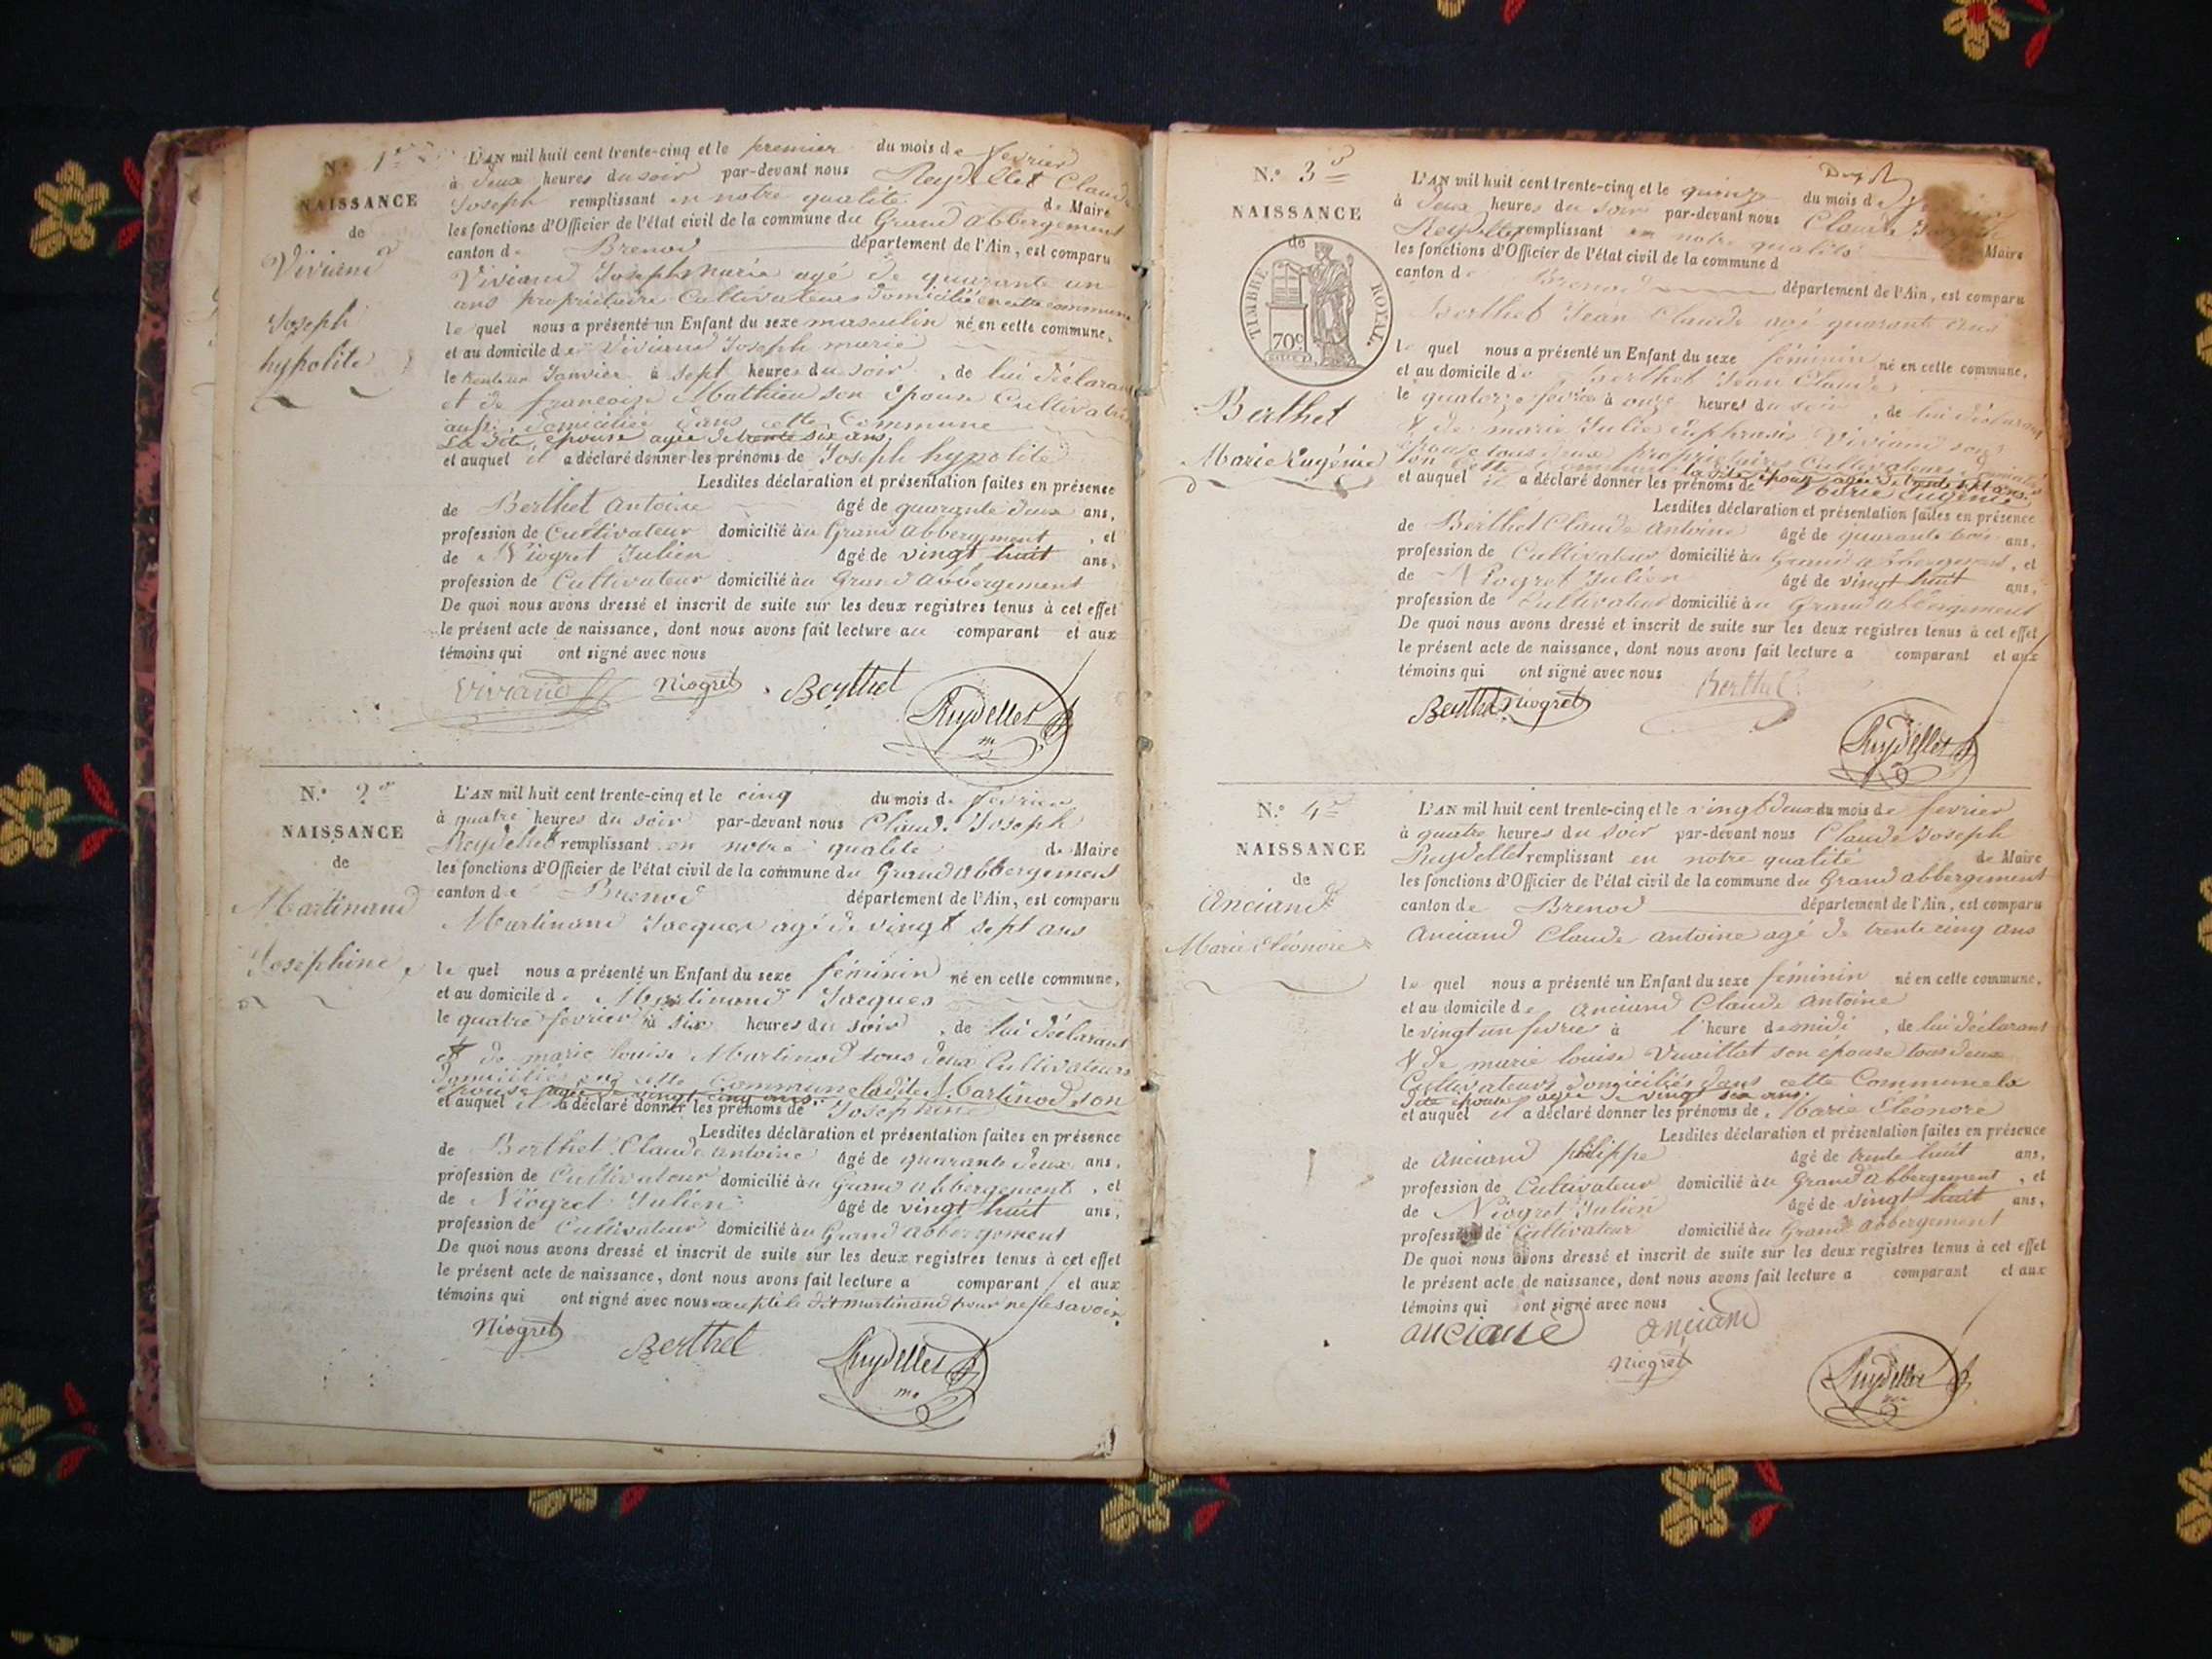 N.o 1er
NAISSANCE
de
Viviand
Joseph
hypolite
L'AN mil huit cent trente-cinq et le premier du mois de fevrier
à deux heures du soir par-devant nous Reydellet Claude
Joseph remplissant en notre qualité de Maire
les fonctions d'Officier de l'état civil de la commune du Grand abbergement
canton de Brenod département de l'Ain, est comparu
Viviand Joseph Marie agé de quarante un
ans propriétaire Cultivateur domicilié en cette commune
le quel nous a présenté un Enfant du sexe masculin né en cette commune,
et au domicile de Viviand Joseph marie
le trente un Janvier à sept heures du soir, de lui déclarant
et de francoise Mathieu son épouse Cultivatrice
aussi domiciliée dans cette Commune
La dite épouse agée de trente six ans
et auquel il a déclaré donner les prénoms de Joseph hypolite
Lesdites déclaration et présentation faites en présence
de Berthet Antoine âgé de quarante deux ans,
profession de Cultivateur domicilié au Grand abbergement, et
de Niogret Julien âgé de vingt huit ans,
profession de Cultivateur domicilié au Grand abbergement
De quoi nous avons dressé et inscrit de suite sur les deux registres tenus à cet effet
le présent acte de naissance, dont nous avons fait lecture au comparant et aux
témoins qui ont signé avec nous
Viviand Niogret Berthet
Reydellet
m
N.o 2e
NAISSANCE
de
Martinand
Josephine
L'AN mil huit cent trente-cinq et le cinq du mois de fevrier
à quatre heures du soir par-devant nous Claude Joseph
Reydellet remplissant en notre qualité de Maire
les fonctions d'Officier de l'état civil de la commune du Grand abbergement
canton de Brenod département de l'Ain, est comparu
Martinand Jacques agé de vingt sept ans
le quel nous a présenté un Enfant du sexe féminin né en cette commune,
et au domicile de Martinand Jacques
le quatre fevrier à six heures du soir, de lui déclarant
et de marie louise Martinod tous deux Cultivateurs
domiciliés en cette Commune ladite Martinod son
épouse agée de vingt cinq ans.
et auquel il a déclaré donner les prénoms de Josephine
Lesdites déclaration et présentation faites en présence
de Berthet Claude antoine âgé de quarante deux ans,
profession de Cultivateur domicilié au Grand abbergement, et
de Niogret Julien âgé de vingt huit ans,
profession de Cultivateur domicilié au Grand abbergement
De quoi nous avons dressé et inscrit de suite sur les deux registres tenus à cet effet
le présent acte de naissance, dont nous avons fait lecture a comparant et aux
témoins qui ont signé avec nous excepté le dit martinand pour ne le savoir.
Niogret Berthet Reydellet
m
N.o 3e
NAISSANCE
de
TIMBRE ROYAL.
70c
Berthet
Marie Eugénie
L'AN mil huit cent trente-cinq et le quinze du mois de
à deux heures du soir par-devant nous Claude Joseph
Reydellet remplissant en notre qualité Maire
les fonctions d'Officier de l'état civil de la commune d
canton de Brenod département de l'Ain, est comparu
Berthet Jean Claude agé quarante ans
le quel nous a présenté un Enfant du sexe féminin né en cette commune,
et au domicile de Berthet Jean Claude
le quatorze fevrier à onze heures du soir, de lui déclarant
& de marie Julie euphrasie Viviand son
épouse tous deux propriétaires Cultivateurs domiciliés
en cette Commune la dite épouse agée de trente sept ans.
et auquel il a déclaré donner les prénoms de Marie Eugénie
Lesdites déclaration et présentation faites en présence
de Berthet Claude antoine âgé de quarante trois ans,
profession de Cultivateur domicilié au Grand abbergement, et
de Niogret Julien âgé de vingt huit ans,
profession de Cultivateur domicilié au Grand abbergement
De quoi nous avons dressé et inscrit de suite sur les deux registres tenus à cet effet
le présent acte de naissance, dont nous avons fait lecture a comparant et aux
témoins qui ont signé avec nous
Berthet Niogret Berthet
Reydellet
N.o 4e
NAISSANCE
de
Anciand
Marie Eléonore
L'AN mil huit cent trente-cinq et le vingt deux du mois de fevrier
à quatre heures du soir par-devant nous Claude Joseph
Reydellet remplissant en notre qualité de Maire
les fonctions d'Officier de l'état civil de la commune du Grand abbergement
canton de Brenod département de l'Ain, est comparu
Anciand Claude antoine agé de trente cinq ans
le quel nous a présenté un Enfant du sexe féminin né en cette commune,
et au domicile de anciand Claude Antoine
le vingt un fevrier à l'heure de midi, de lui déclarant
& de marie louise Vuaillat son épouse tous deux
Cultivateurs domiciliés dans cette Commune la
dite épouse agée de vingt six ans
et auquel il a déclaré donner les prénoms de Marie Eléonore
Lesdites déclaration et présentation faites en présence
de anciand philippe âgé de trente huit ans,
profession de Cultivateur domicilié au Grand abbergement, et
de Niogret Julien âgé de vingt huit ans,
profession de Cultivateur domicilié au Grand abbergement
De quoi nous avons dressé et inscrit de suite sur les deux registres tenus à cet effet
le présent acte de naissance, dont nous avons fait lecture a comparant et aux
témoins qui ont signé avec nous
anciand anciand
Niogret Reydellet